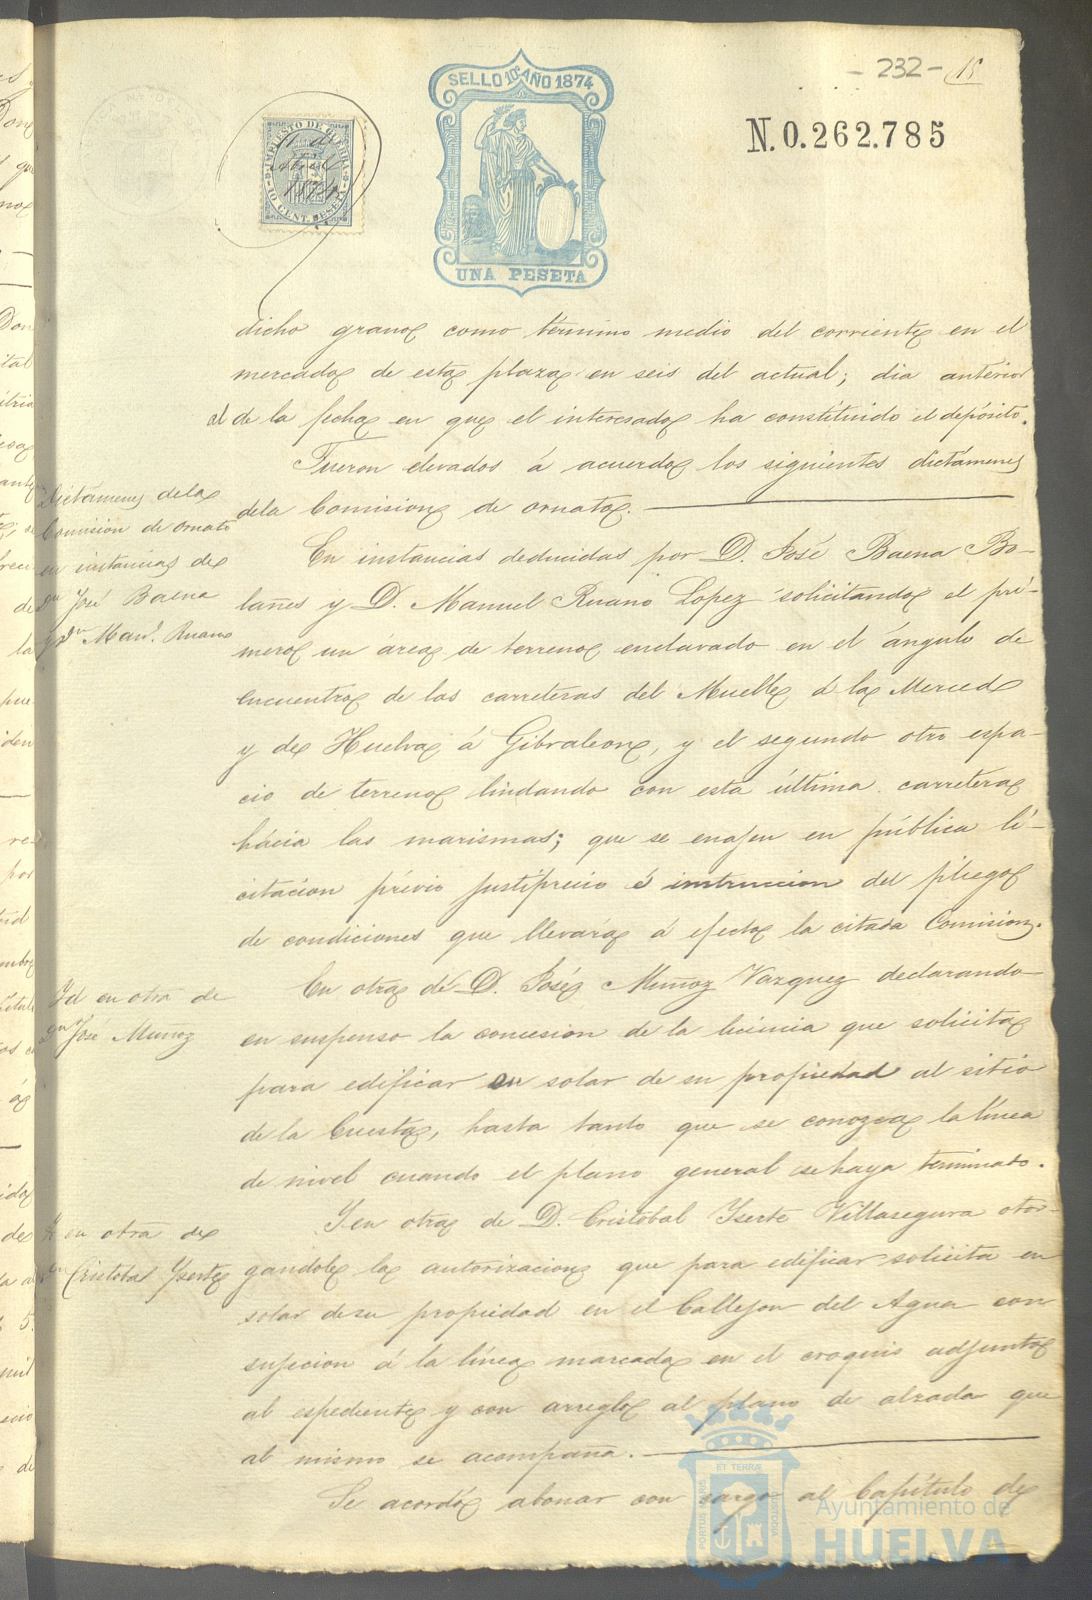 - 232 - 18
SELLO 10º AÑO 1874
UNA PESETA
IMPUESTO DE GUERRA
10 CENT. PESETA
11 de
Abril
1874
N. 0.262.785
dicho grano como término medio del corriente en el
mercado de esta plaza en seis del actual; dia anterior
al de la fecha en que el interesado ha constituido el depósito.
Fueron elevados á acuerdo los siguientes dictámenes
dela Comision de ornato.
Dictámenes dela
Comision de ornato
en instancias de
Dn José Baena
y Dn Manl. Ruano
En instancias deducidas por D. José Baena Bo-
lañes y D. Manuel Ruano Lopez solicitando el pri-
mero un área de terreno enclavado en el ángulo de
encuentro de las carreteras del Muelle á la Merced
y de Huelva á Gibraleon, y el segundo otro espa-
cio de terreno lindando con esta última carretera
hácia las marismas; que se enajen en pública li-
citacion prévio justiprecio é instruccion del pliego
de condiciones que llevará á efecto la citada Comision.
Id en otra de
Dn José Muñoz
En otra de D. José Muñoz Vazquez declarando
en suspenso la concesion de la licencia que solicita
para edificar en solar de su propiedad al sitio
de la Cuesta, hasta tanto que se conozca la línea
de nivel cuando el plano general se haya terminado.
Id en otra de
Dn Cristobal Yserte
Y en otra de D. Cristóbal Yserte Villasegura otor-
gandole la autorizacion que para edificar solicita en
solar de su propiedad en el Callejon del Agua con
sujecion á la línea marcada en el croquis adjunto
al espediente y con arreglo al plano de alzada que
al mismo se acompaña.
Se acordó abonar con cargo al Capítulo de
PORTUS MARIS
ET TERRÆ
CUSTODIA
Ayuntamiento de
HUELVA